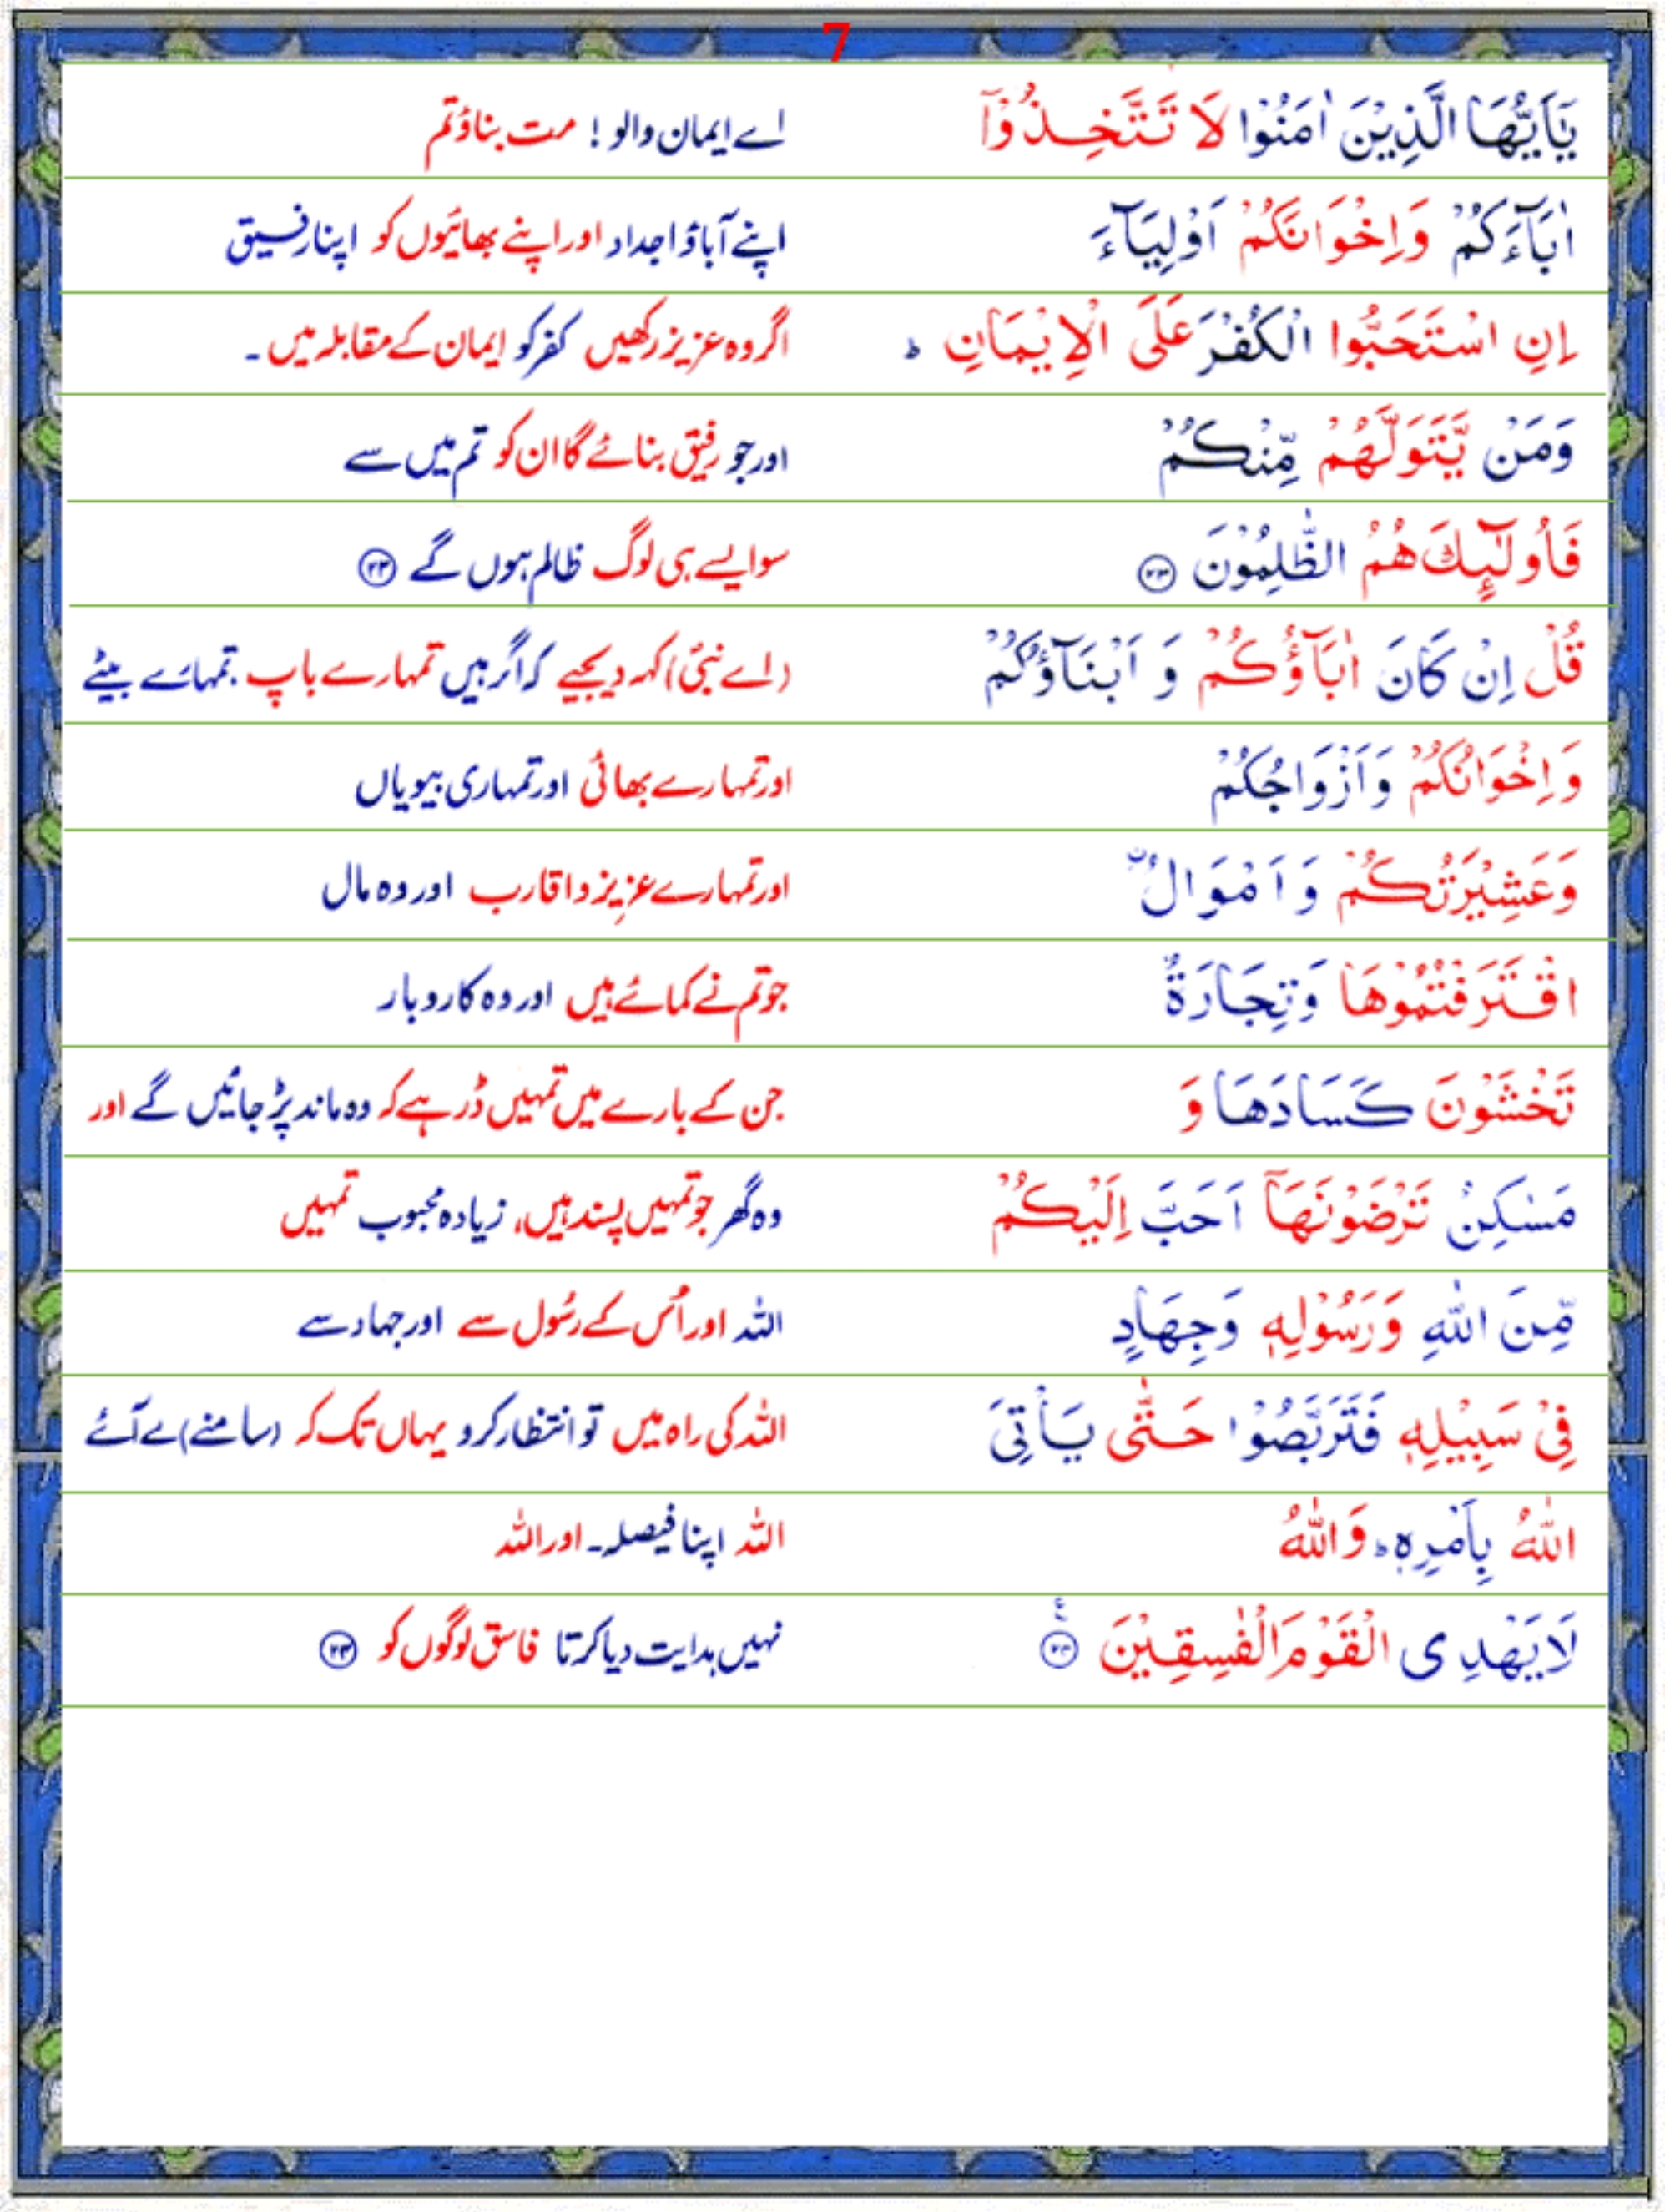 7
يٰۤاَيُّهَا الَّذِيْنَ اٰمَنُوْا لَا تَتَّخِذُوْۤا اے ایمان والو ! مت بناؤ تم
اٰبَآءَكُمْ وَاِخْوَانَكُمْ اَوْلِيَآءَ اپنے آباؤ اجداد اور اپنے بھائیوں کو اپنا رفیق
اِنِ اسْتَحَبُّوا الْكُفْرَ عَلَى الْاِيْمَانِ ؕ اگر وہ عزیز رکھیں کفر کو ایمان کے مقابلہ میں۔
وَمَنْ يَّتَوَلَّهُمْ مِّنْكُمْ اور جو رفیق بنائے گا ان کو تم میں سے
فَاُولٰٓئِكَ هُمُ الظّٰلِمُوْنَ ﴿۲۳﴾ سو ایسے ہی لوگ ظالم ہوں گے ﴿۲۳﴾
قُلْ اِنْ كَانَ اٰبَآؤُكُمْ وَ اَبْنَآؤُكُمْ (اے نبیؐ) کہہ دیجیے کہ اگر ہیں تمہارے باپ، تمہارے بیٹے
وَاِخْوَانُكُمْ وَاَزْوَاجُكُمْ اور تمہارے بھائی اور تمہاری بیویاں
وَعَشِيْرَتُكُمْ وَاَمْوَالُ ۨ اور تمہارے عزیز و اقارب اور وہ مال
اقْتَرَفْتُمُوْهَا وَتِجَارَةٌ جو تم نے کمائے ہیں اور وہ کاروبار
تَخْشَوْنَ كَسَادَهَا وَ جن کے بارے میں تمہیں ڈر ہے کہ وہ ماند پڑ جائیں گے اور
مَسٰكِنُ تَرْضَوْنَهَاۤ اَحَبَّ اِلَيْكُمْ وہ گھر جو تمہیں پسند ہیں، زیادہ محبوب تمہیں
مِّنَ اللّٰهِ وَرَسُوْلِهٖ وَجِهَادٍ اللہ اور اُس کے رسُول سے اور جہاد سے
فِيْ سَبِيْلِهٖ فَتَرَبَّصُوْا حَتّٰى يَاْتِيَ اللہ کی راہ میں تو انتظار کرو یہاں تک کہ (سامنے) لے آئے
اللّٰهُ بِاَمْرِهٖ ؕ وَاللّٰهُ اللہ اپنا فیصلہ۔ اور اللہ
لَا يَهْدِى الْقَوْمَ الْفٰسِقِيْنَ ﴿۲۴﴾ نہیں ہدایت دیا کرتا فاسق لوگوں کو ﴿۲۴﴾